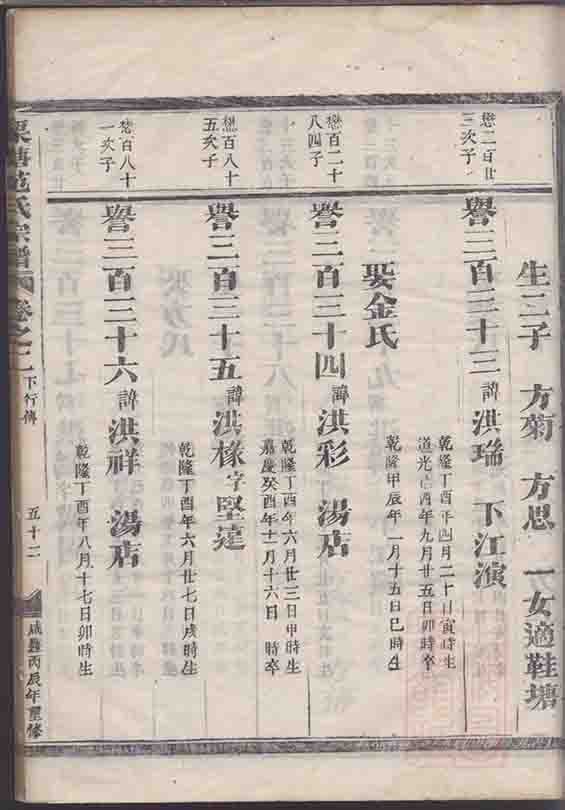 生二子 方菊 方思 一女適鞋塘
懋二百廿
三次子
譽二百三十三 諱洪瑞 下江演
乾隆丁酉年四月二十日寅時生
道光 酉年九月廿五日卯時卒
娶金氏
乾隆甲辰年一月十五日巳時生
懋百二十
八四子
譽二百三十四 諱洪彩 湯店
乾隆丁酉年六月廿三日甲時生
嘉慶癸酉年十一月十六日 時卒
懋百八十
五次子
譽二百三十五 諱洪椽字堅達
乾隆丁酉年六月廿七日戌時生
懋百八十
一次子
譽二百三十六 諱洪祥 湯店
乾隆丁酉年八月十七日卯時生
栗塘范氏宗譜 卷之二 下行傳 五十二 咸豐丙辰年重修